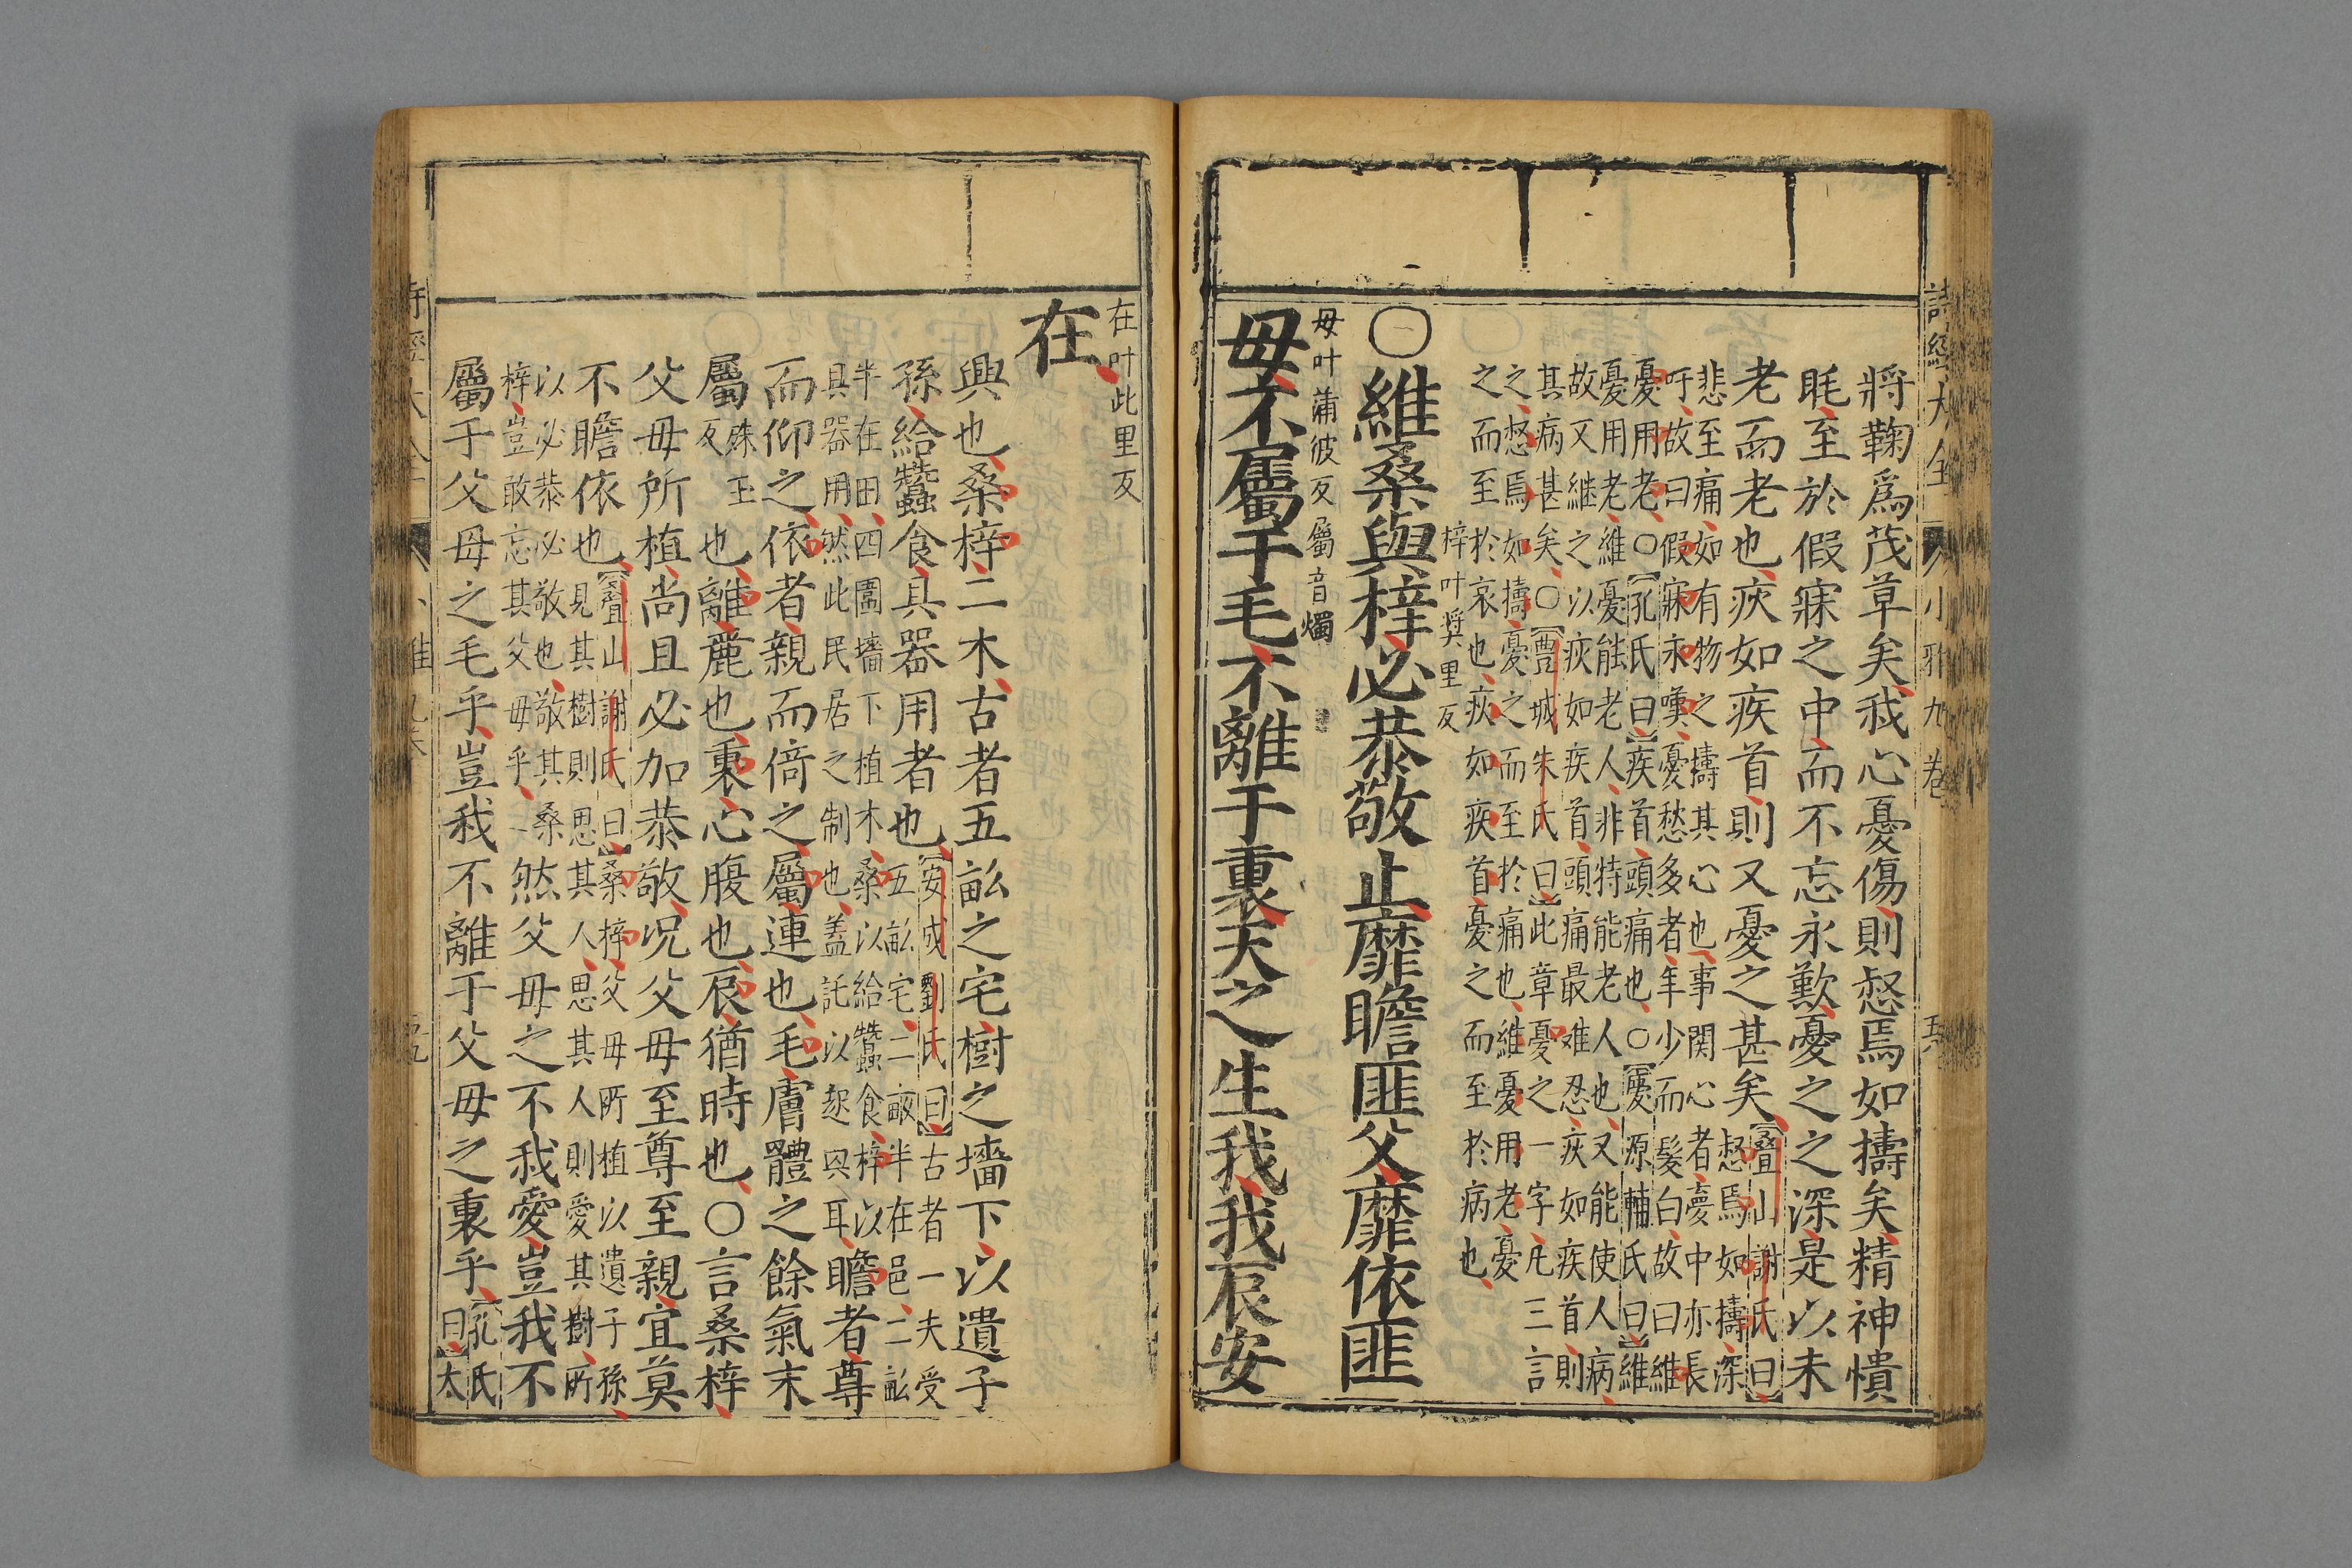 詩經大全 小雅九卷
將鞠爲茂草矣我心憂傷則惄焉如擣矣精神憒
眊至於假寐之中而不忘永歎憂之之深是以未
老而老也疢如疾首則又憂之甚矣【疊山謝氏曰】惄焉如擣深
悲至痛如有物之擣其心也事関心者夢中亦長
吁故曰假寐永嘆憂愁多者年少而髪白故曰維
憂用老○【孔氏曰】疾首頭痛也○【慶源輔氏曰】維
憂用老維憂能老人非特能老人也又能使人病
故又継之以疢如疾首頭痛最难忍疢如疾首則
其病甚矣○【豐城朱氏曰】此章憂之一字凡三言
之惄焉如擣憂之而至於痛也維憂用老憂
之而至於哀也疢如疾首憂之而至於病也
梓叶奬里反
○維桑與梓必恭敬止靡瞻匪父靡依匪
母叶蒲彼反屬音燭
母不屬于毛不離于裏天之生我我辰安
在叶此里反
在
興也桑梓二木古者五畝之宅樹之墻下以遺子
孫給蠶食具器用者也【安成劉氏曰】古者一夫受
五畝宅二畝半在邑二畝
半在田四圍墻下植木桑以給蠶食梓以
具器用然此民居之制也盖託以起興耳瞻者尊
而仰之依者親而倚之屬連也毛膚體之餘氣末
屬殊玉反也離麗也裏心腹也辰猶時也○言桑梓
父母所植尚且必加恭敬况父母至尊至親宜莫
不瞻依也【疊山謝氏曰】桑梓父母所植以遺子孫
見其樹則思其人思其人則愛其樹所
以必恭必敬也敬其桑
梓豈敢忘其父母乎然父母之不我愛豈我不
屬于父母之毛乎豈我不離于父母之裏乎【孔氏
曰】太